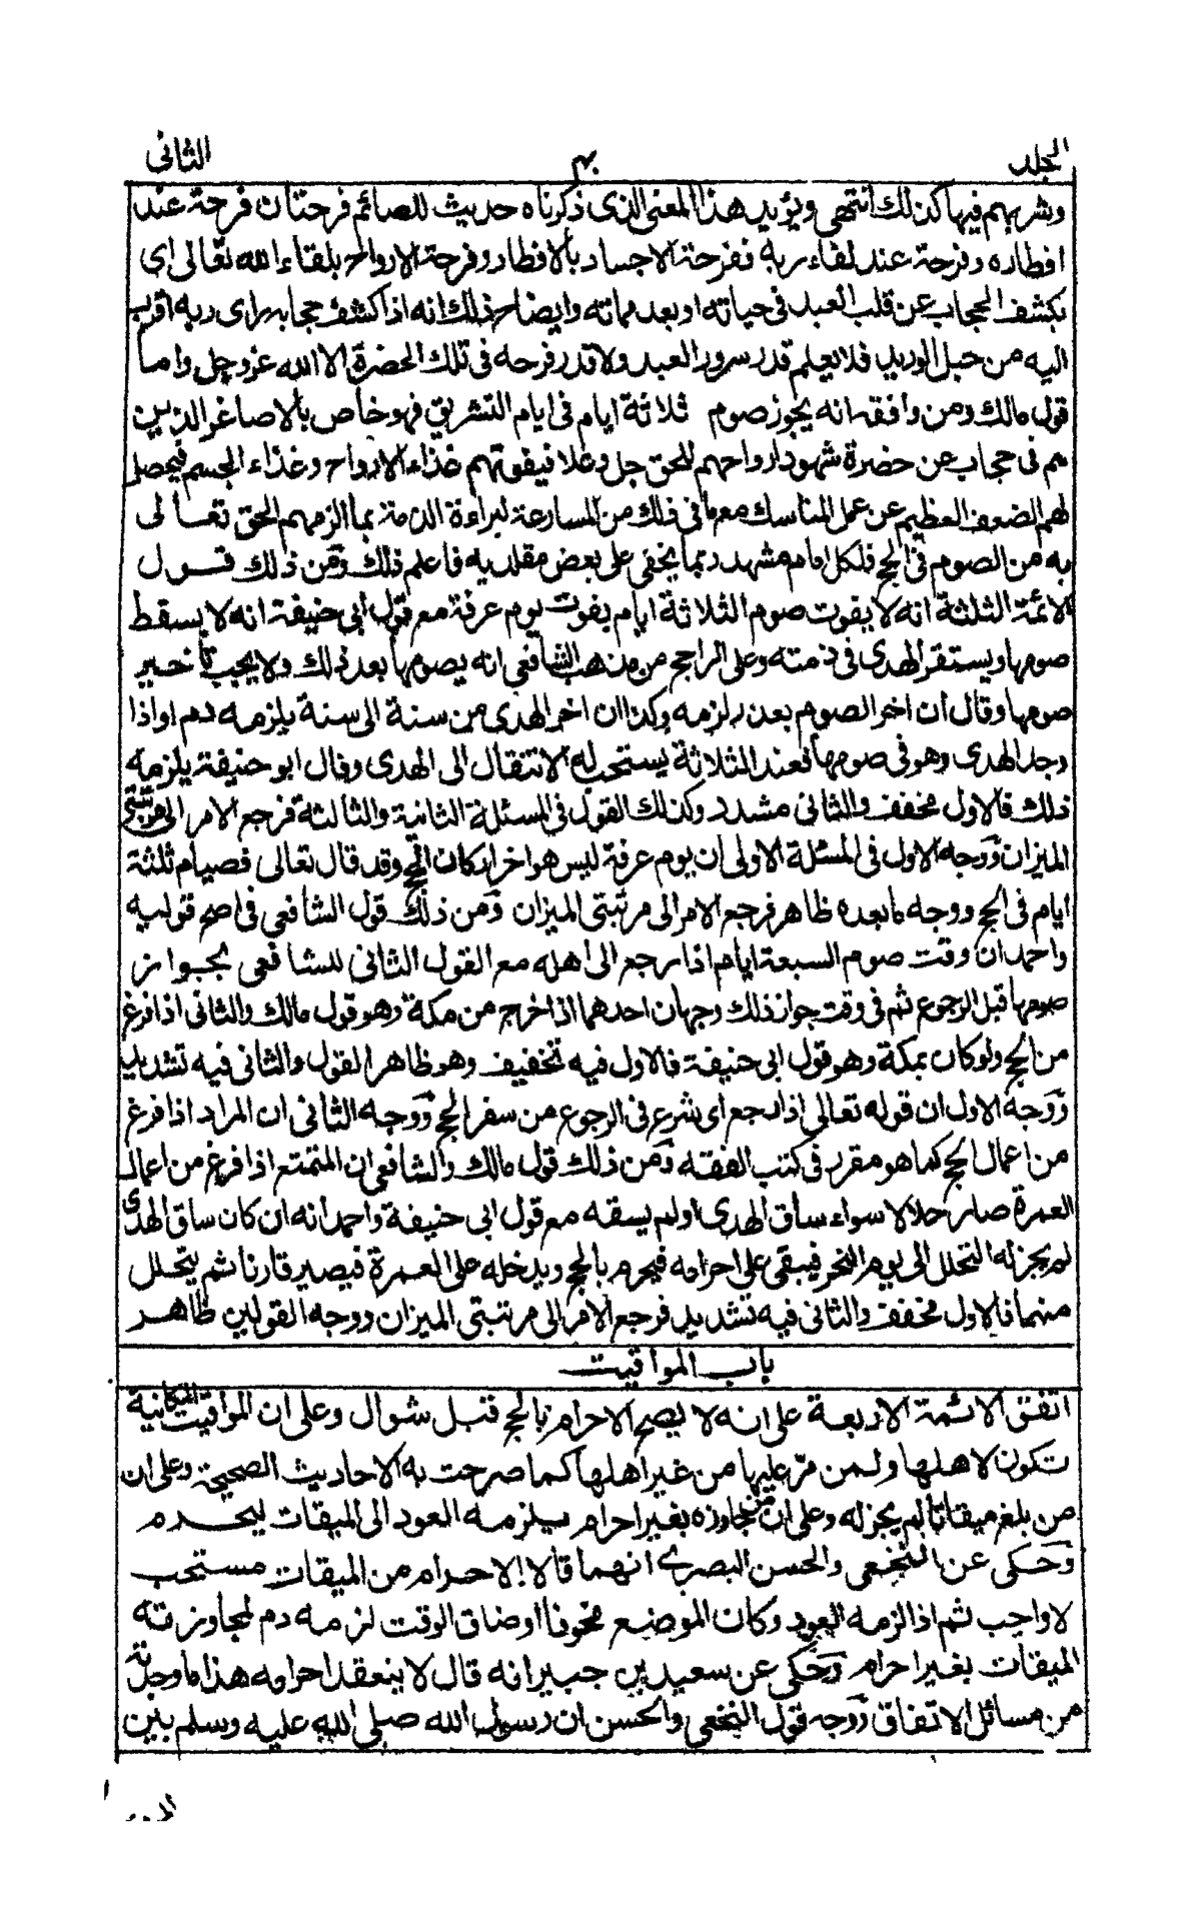 الجلد ٤٠ الثانى
وشربهم فيها كذلك انتهى ويؤيد هذا المعنى الذى ذكرناه حديث للصائم فرحتان فرحة عند
افطاره وفرحة عند لقاء ربه ففرحة الاجساد بالافطار وفرحة الارواح بلقاء الله تعالى اى
بكشف الحجاب عن قلب العبد فى حياته او بعد مماته وايضاح ذلك انه اذا كشف حجابه راى ربه اقرب
اليه من حبل الوريد فلا يعلم قدر سرور العبد ولا قدر فرحه فى تلك الحضرة الا الله عزوجل واما
قول مالك ومن وافقه انه يجوز صوم ثلاثة ايام فى ايام التشريق فهو خاص بالاصاغر الذين
هم فى حجاب عن حضرة شهود ارواحهم للحق جل وعلا فيفوتهم غذاء الارواح وغذاء الجسم فيحصل
لهم الضعف العظيم عن عمل المناسك مع ما فى ذلك من المسارعة لبراءة الذمة بما الزمهم الحق تعالى
به من الصوم فى الحج فلكل امام مشهد ربما يخفى على بعض مقلديه فاعلم ذلك ومن ذلك قول
الائمة الثلثة انه لا يفوت صوم الثلاثة ايام بفوت يوم عرفة مع قول ابى حنيفة انه لا يسقط
صومها ويستقر الهدى فى ذمته وعلى الراجح من مذهب الشافعى انه يصومها بعد ذلك ولا يجب تأخير
صومها وقال ان اخر الصوم بعد لزمه وكذا ان اخر الهدى من سنة الى سنة يلزمه دم او اذا
وجد الهدى وهو فى صومها فعند الثلاثة يستحب له الانتقال الى الهدى وقال ابو حنيفة يلزمه
ذلك فالاول مخفف والثانى مشدد وكذلك القول فى المسئلة الثانية والثالثة فرجع الامر الى مرتبتى
الميزان ووجه الاول فى المسئلة الاولى ان يوم عرفة ليس هو اخر اركان الحج وقد قال تعالى فصيام ثلثة
ايام فى الحج ووجه ما بعده ظاهر فرجع الامر الى مرتبتى الميزان ومن ذلك قول الشافعى فى اصح قوليه
واحمد ان وقت صوم السبعة ايام اذا رجع الى اهله مع القول الثانى للشافعى بجواز
صومها قبل الرجوع ثم فى وقت جواز ذلك وجهان احدهما اذا خرج من مكة وهو قول مالك والثانى اذا فرغ
من الحج ولو كان بمكة وهو قول ابى حنيفة فالاول فيه تخفيف وهو ظاهر القول والثانى فيه تشديد
ووجه الاول ان قوله تعالى اذا رجع اى شرع فى الرجوع من سفر الحج ووجه الثانى ان المراد اذا فرغ
من اعمال الحج كما هو مقرر فى كتب الفقه ومن ذلك قول مالك والشافعى ان المتمتع اذا فرغ من اعمال
العمرة صار حلالا سواء ساق الهدى او لم يسقه مع قول ابى حنيفة واحمد انه ان كان ساق الهدى
لم يجز له التحلل الى يوم النحر فيبقى على احرامه فيحرم بالحج ويدخله على العمرة فيصير قارنا ثم يتحلل
منهما فالاول مخفف والثانى فيه تشديد فرجع الامر الى مرتبتى الميزان ووجه القولين ظاهر
باب المواقيت
اتفق الائمة الاربعة على انه لا يصح الاحرام بالحج قبل شوال وعلى ان المواقيت المكانية
تكون لاهلها ولمن مر عليها من غير اهلها كما صرحت به الاحاديث الصحيحة وعلى ان
من بلغ ميقاتا لم يجز له وعلى ان من جاوزه بغير احرام يلزمه العود الى الميقات ليحرم
وحكى عن النخعى والحسن البصرى انهما قالا الاحرام من الميقات مستحب
لا واجب ثم اذا لزمه العود وكان الموضع مخوفا او ضاق الوقت لزمه دم لمجاوزته
الميقات بغير احرام وحكى عن سعيد بن جبير انه قال لا ينعقد احرامه هذا ما وجدته
من مسائل الاتفاق ووجه قول النخعى والحسن ان رسول الله صلى الله عليه وسلم بين